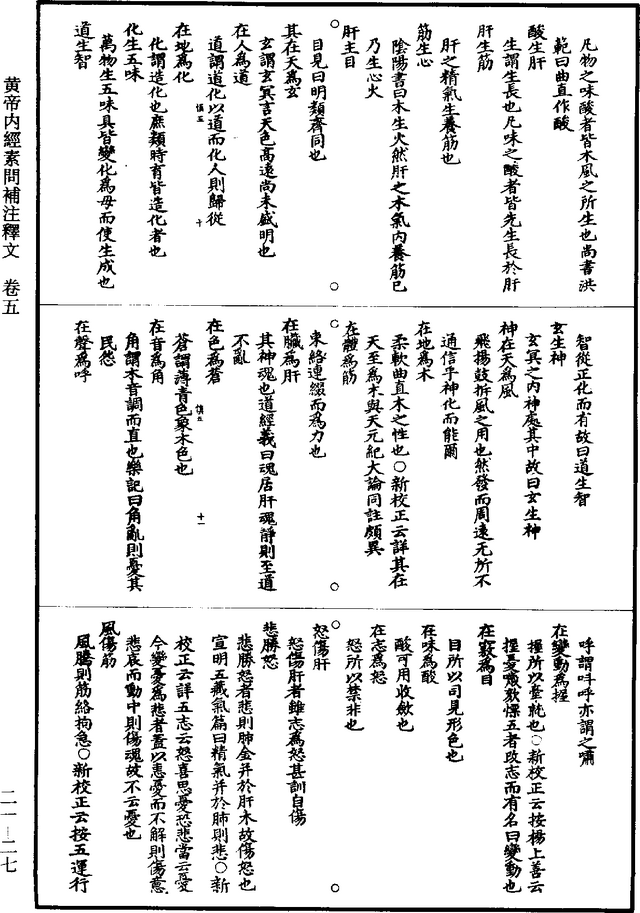 黄帝内經素問補注釋文　卷五
凡物之味酸者皆木風之所生也尚書洪
範曰曲直作酸
酸生肝
生謂生長也凡味之酸者皆先生長於肝
肝生筋
肝之精氣生養筋也
筋生心
陰陽書曰木生火然肝之木氣内養筋已
乃生心火
肝主目
目見曰明類齊同也
其在天爲玄
玄謂玄冥言天色高遠尚未盛明也
在人爲道
道謂道化以道而化人則歸從
在地爲化
化謂造化也庶類時育皆造化者也
化生五味
萬物生五味具皆變化爲母而使生成也
道生智
慎五
十
智從正化而有故曰道生智
玄生神
玄冥之内神處其中故曰玄生神
神在天爲風
飛揚鼓拆風之用也然發而周遠无所不
通信乎神化而能爾
在地爲木
柔軟曲直木之性也○新校正云詳其在
天至爲木與天元紀大論同註頗異
在體爲筋
束絡連綴而爲力也
在臓爲肝
其神魂也道經義曰魂居肝魂靜則至道
不亂
在色爲蒼
蒼謂薄青色象木色也
在音爲角
角謂木音調而直也樂記曰角亂則憂其
民怨
在聲爲呼
慎五
十一
呼謂叫呼亦謂之嘯
在變動爲握
握所以牽就也○新校正云按楊上善云
握憂噦欬慄五者改志而有名曰變動也
在竅爲目
目所以司見形色也
在味爲酸
酸可用收斂也
在志爲怒
怒所以禁非也
怒傷肝
怒傷肝者雖志爲怒甚訓自傷
悲勝怒
悲勝怒者悲則肺金并於肝木故傷怒也
宣明五藏氣篇曰精氣并於肺則悲○新
校正云詳五志云怒喜思憂恐悲當云憂
今變憂爲悲者蓋以恚憂而不解則傷意
悲哀而動中則傷魂故不云憂也
風傷筋
風勝則筋絡拘急○新校正云按五運行
二一—二七